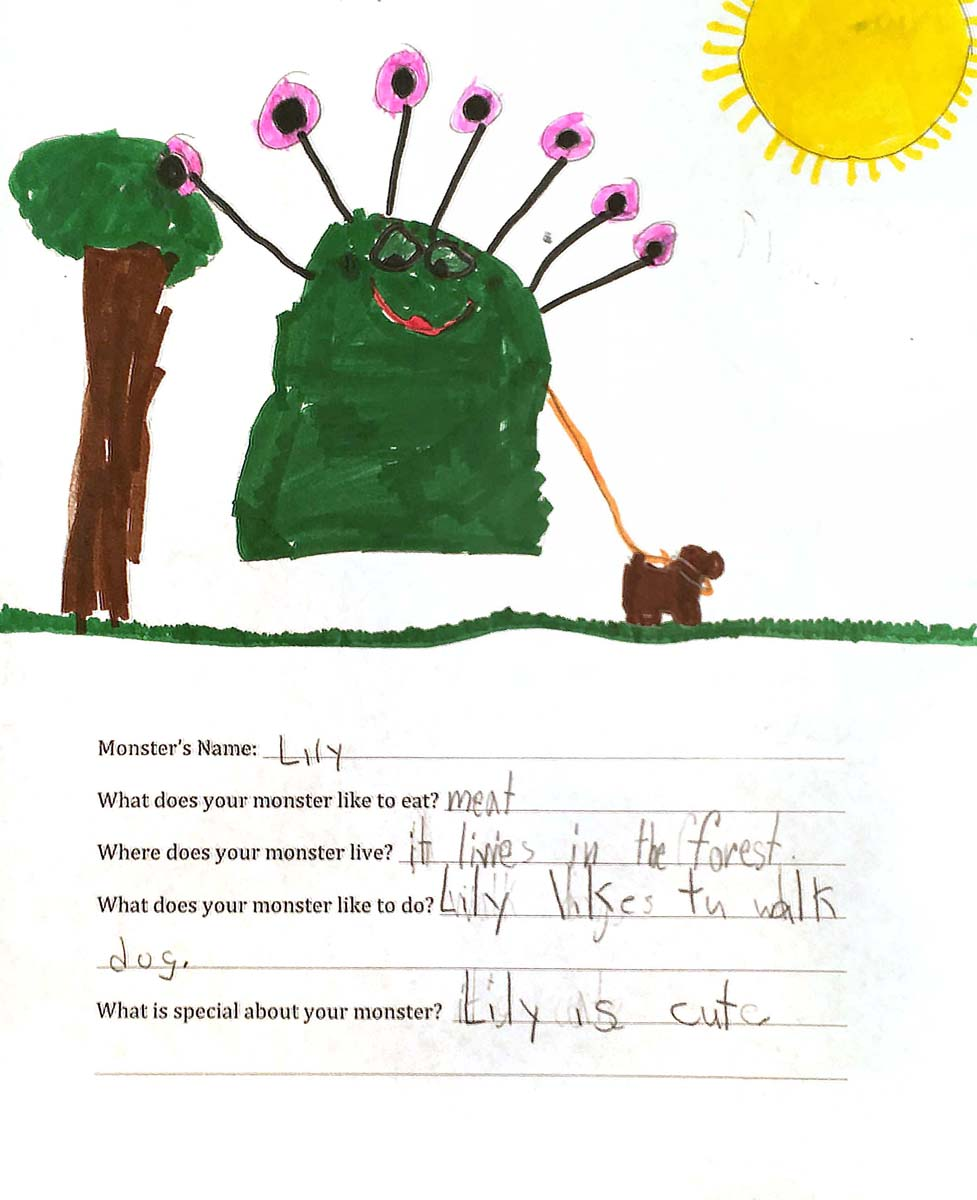 Monster's Name: Lily
What does your monster like to eat? meat
Where does your monster live? it lives in the forest.
What does your monster like to do? Lily likes tu walk
dog.
What is special about your monster? Lily is cute